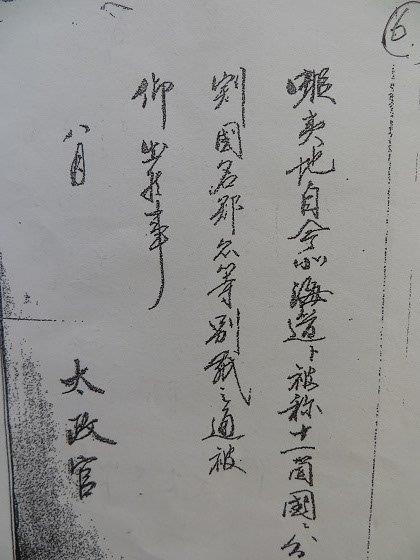 ⑥
蝦夷地自今北海道ト被称十一箇國ニ分
割國名郡名等別紙之通被
仰出候事
八月
太政官